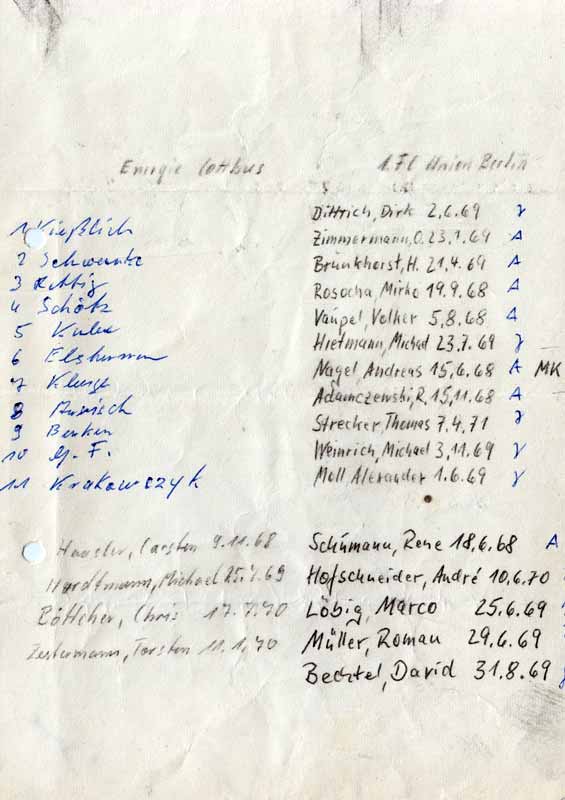 Energie Cottbus
1. FC Union Berlin
1 Kießlich
2 Schwanke
3 Rettig
4 Schötz
5 Kulex
6
7 Kluge
8
9
10
11 Krakowczyk
Haasler, Carsten 9.11.68
Hardtmann, Michael 25.7.69
Böttcher, Chris 17.7.70
Zestermann, Torsten 11.1.70
Dittrich, Dirk 2.6.69 γ
Zimmermann, O. 23.1.69 A
Brunkhorst, H. 21.4.69 A
Rosocha, Mirko 19.9.68 A
Vaupel, Volker 5.8.68 A
Hietmann, Michael 23.7.69 γ
Nagel, Andreas 15.6.68 A MK
Adamczewski, R. 15.11.68 A
Strecker, Thomas 7.4.71 γ
Weinrich, Michael 3.11.69 γ
Moll Alexander 1.6.69 γ
Schümann, Rene 18.6.68 A
Hofschneider, André 10.6.70
Löbig, Marco 25.6.69
Müller, Roman 29.6.69
Bechtel, David 31.8.69